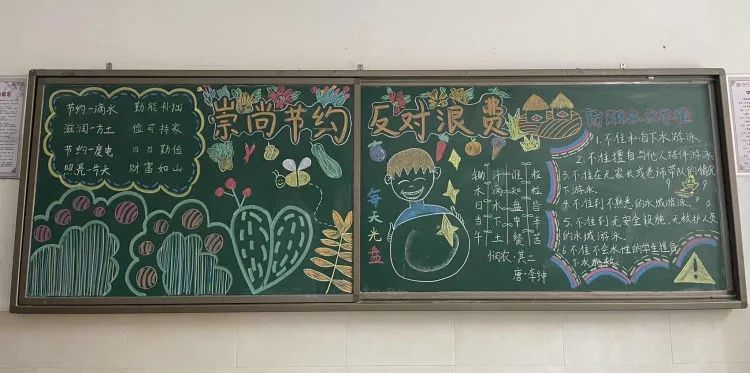 节约一滴水 勤能补拙
滋润一方土 俭可持家
节约一度电 日日勤俭
照亮一片天 财富如山
崇尚节约
反对浪费
每天光盘
锄禾日当午
汗滴禾下土
谁知盘中餐
粒粒皆辛苦
悯农·其二
唐·李绅
防溺水六不准
1.不准私自下水游泳.
2.不准擅自与他人结伴游泳
3.不准在无家长或老师带队的情况
下游泳.
4.不准到不熟悉的水域游泳.
5.不准到无安全设施,无救护人员
的水域游泳.
6.不准不会水性的学生擅自
下水施救.